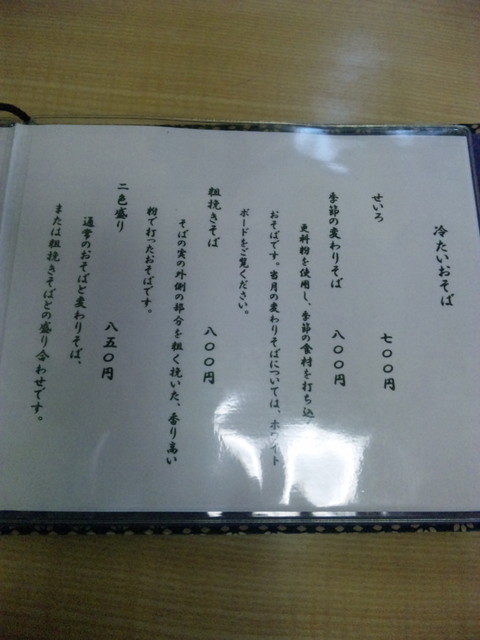 冷たいおそば
せいろ 七〇〇円
季節の変わりそば 八〇〇円
更科粉を使用し、季節の食材を打ち込
おそばです。当月の変わりそばについては、ホワイト
ボードをご覧ください。
粗挽きそば 八〇〇円
そばの実の外側の部分を粗く挽いた、香り高い
粉で打ったおそばです。
二色盛り 八五〇円
通常のおそばと変わりそば、
または粗挽きそばとの盛り合わせです。